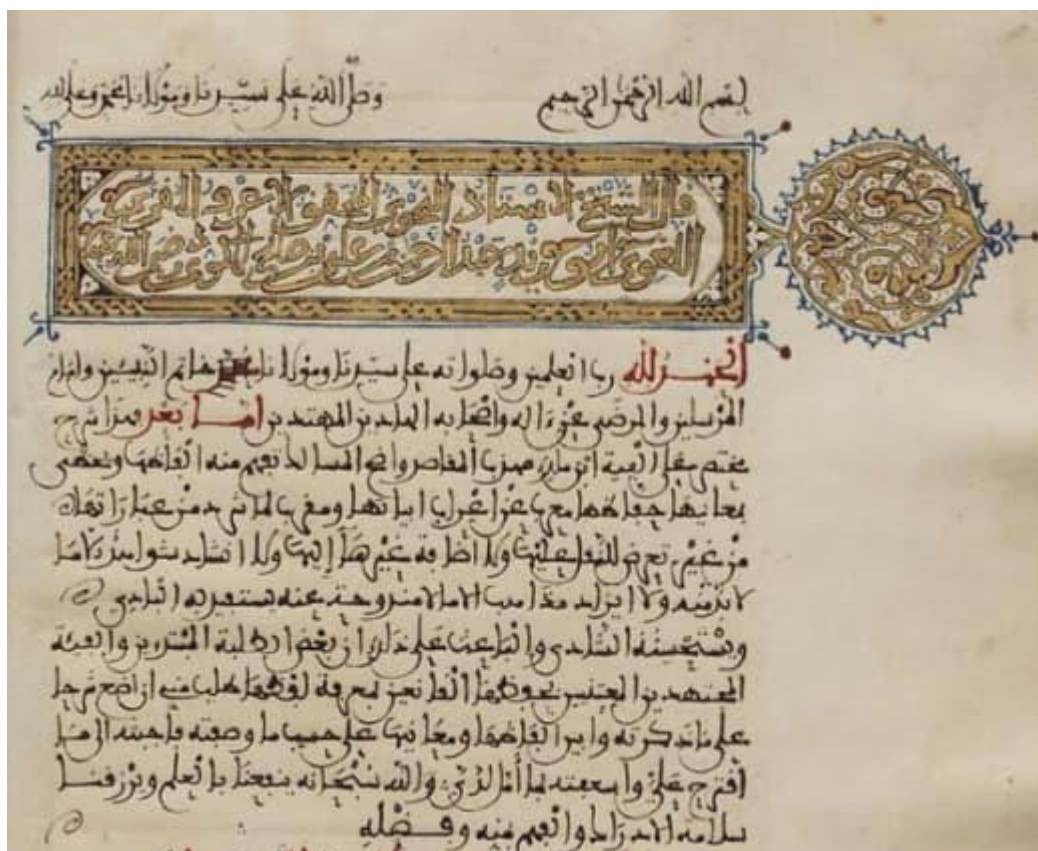 بسم الله الرحمن الرحيم وصلى الله على سيدنا ومولانا محمد وعلى اله
قال الشيخ الاستاذ النحوي المحقق الاعرف المقرئ
اللغوي ابو زيد عبد الرحمن بن علي بن صالح المكودي رحمه الله
الحمد لله رب العلمين وصلواته على سيدنا ومولانا محمد خاتم النبيين وامام
المرسلين والرضى عن ءاله واصحابه الهادين المهتدين اما بعد فهذا شرح
مختصر على الفية ابن مالك مهذب المقاصد واضح المسالك تفهم منه الفاظها وتحظى
بمعانيها حفاظها معرب عن اعراب ابياتها ومقرب لما شرد من عباراتها
من غير تعرض للنقل عليها ولا اضافة غيرها اليها ولا انشاد شواهد الا ما
لا بد منه ولا ايراد مذاهب الا ما لا مندوحة عنه يستفيد به البادي
ويستحسنه الشادي والباعث على ذلك ان بعض الطلبة المبتدءين والفئة
المجتهدين المعتنين بحفظها القانعين بمعرفة لفظها طلب مني ان اضع شرحا
على ما ذكرته وابين الفاظها ومعانيها على حسب ما وصفته فاجبته الى ما
اقترح علي واسعفته بما أمل لدي والله سبحانه ينفعنا بالعلم ويرزقنا
سلامة الادراك والفهم بمنه وفضله